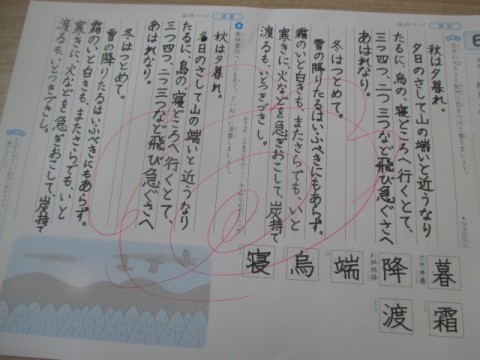 秋は夕暮れ。
夕日のさして山の端いと近うなり
たるに、烏の、寝どころへ行くとて、
三つ四つ、二つ三つなど飛び急ぐさへ
あはれなり。
冬はつとめて。
雪の降りたるはいふべきにもあらず。
霜のいと白きも、またさらでも、いと
寒きに、火などを急ぎおこして、炭持て
渡るも、いとつきづきし。
秋は夕暮れ。
夕日のさして山の端いと近うなり
たるに、烏の、寝どころへ行くとて、
三つ四つ、二つ三つなど飛び急ぐさへ
あはれなり。
冬はつとめて。
雪の降りたるはいふべきにもあらず。
霜のいと白きも、またさらでも、いと
寒きに、火などを急ぎおこして、炭持て
渡るも、いとつきづきし。
暮
霜
降
渡
端
烏
寝